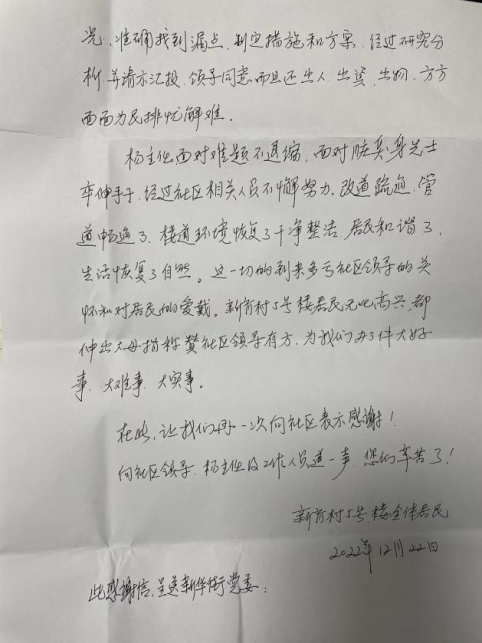 况,准确找到漏点,制定措施和方案,经过研究分
析并请示汇报,领导同意而且还出人、出资、出物,方方
面面为民排忧解难。
杨主任面对难题不退缩,面对脏臭身先士
卒伸手干,经过社区相关人员不懈努力,改道疏通,管
道畅通了,楼道环境恢复了干净整洁,居民和谐了,
生活恢复了自然。这一切的到来多亏社区领导的关
怀和对居民的爱戴。新育村5号楼居民无比高兴,都
伸出大母指称赞社区领导有方,为我们办了件大好
事、大难事、大实事。
在此,让我们再一次向社区表示感谢!
向社区领导、杨主任及工作人员道一声,您们辛苦了!
新育村5号楼全体居民
2022年12月22日
此感谢信,呈送新华街党委: